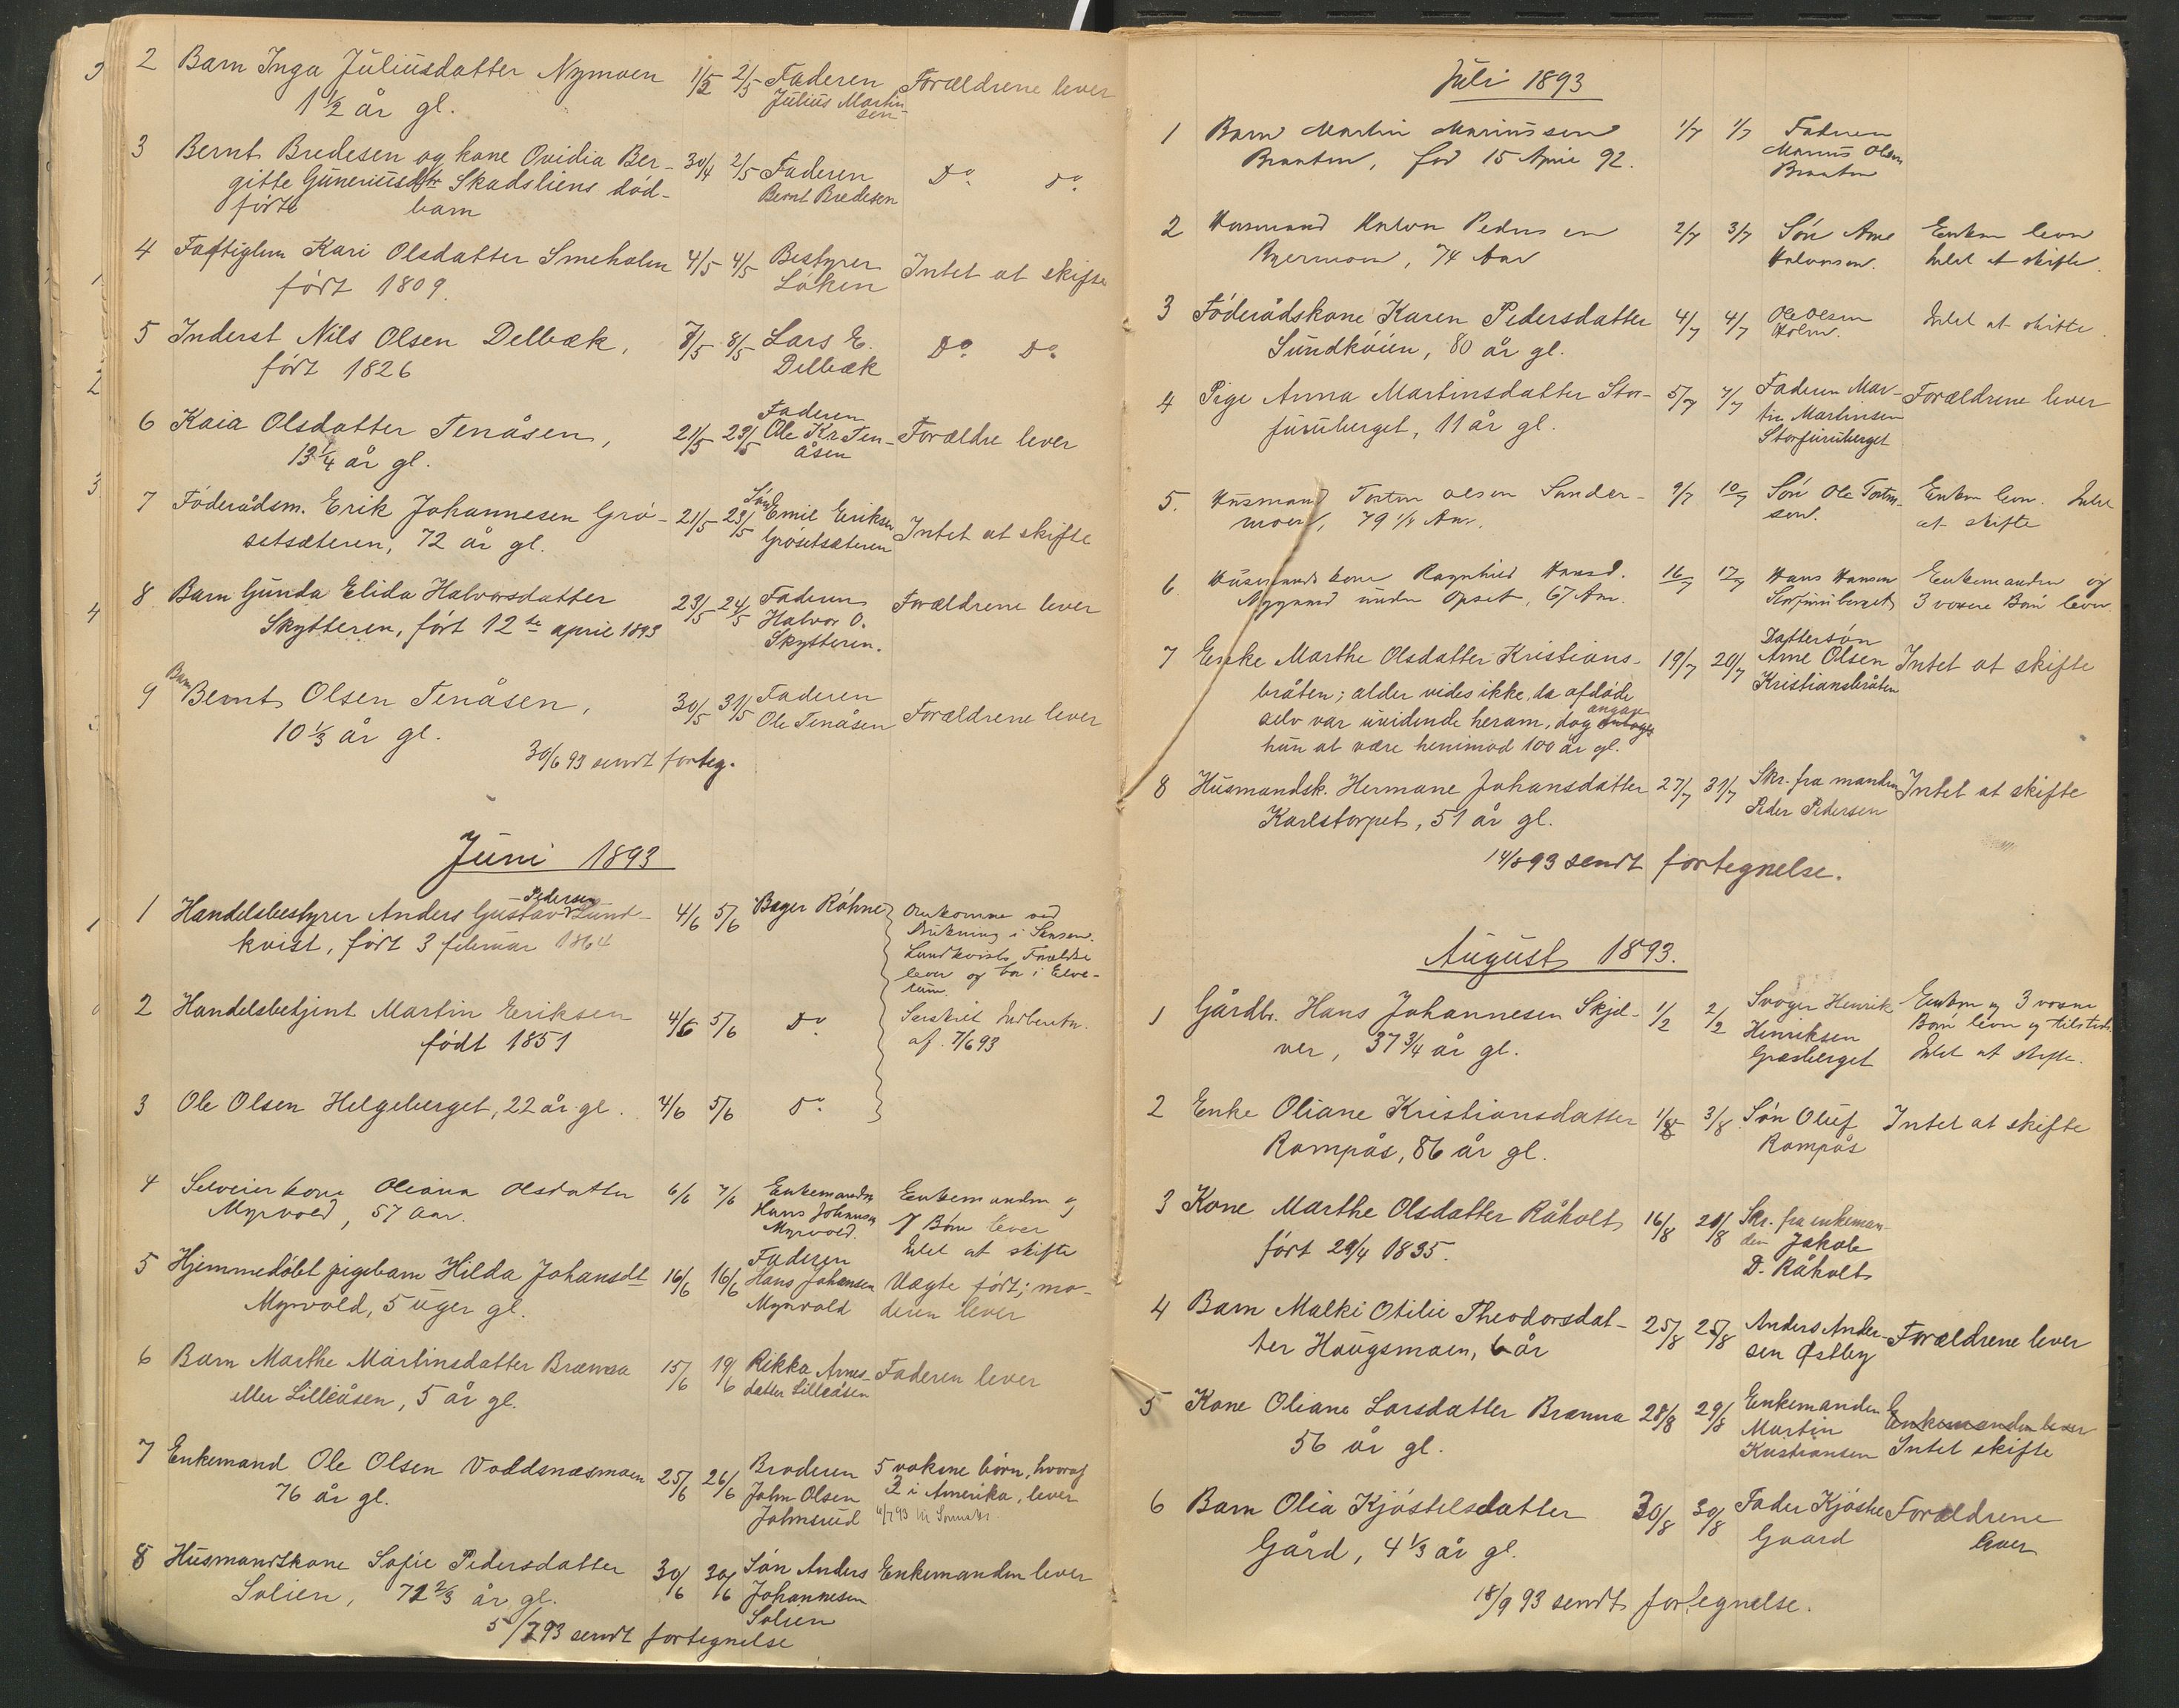 2 Barn Inga Juliusdatter Nymoen 1/5 2/5 Faderen Forældrene lever
1 1/2 år gl. Julius Martin-
sen
3 Bernt Bredesen og kone Ovidia Ber- 30/4 2/5 Faderen Do. Do.
gitte Guneriusdtr Skadsliens død- Bernt Bredesen
førte barn
4 Fattiglem Kari Olsdatter Smeholen 4/5 4/5 Bestyrer Intet at skifte
født 1809. Løken
5 Inderst Nils Olsen Delbæk, 7/5 8/5 Lars E. Do. Do.
født 1826 Delbæk
6 Kaia Olsdatter Tenåsen, 21/5 23/5 Faderen Forældre lever
13 1/4 år gl. Ole Kr. Ten-
åsen
7 Føderådsm. Erik Johannesen Grø- 21/5 23/5 Søn Emil Eriksen Intet at skifte
setsæteren, 72 år gl. Grøsetsæteren
8 Barn Gunda Elida Halvorsdatter 23/5 24/5 Faderen Forældrene lever
Skytteren, født 12te april 1893 Halvor O.
Skytteren.
9 Barn Bernt Olsen Tenåsen, 30/5 31/5 Faderen Forældrene lever
10 1/3 år gl. Ole Tenåsen
30/6 93 sendt forteg.
Juni 1893
1 Handelsbestyrer Anders Gustav Pedersen Lund- 4/6 5/6 Bager Røhne Omkomne ved
kvist, født 3 februar 1864 Drukning i
Lundkvists Forældre
lever og bor i Elve-
rum.
2 Handelsbetjent Martin Eriksen 4/6 5/6 Do. Særskilt Indberetn.
født 1851 af 7/6 93
3 Ole Olsen Helgeberget, 22 år gl. 4/6 5/6 Do.
4 Selveierkone Oliana Olsdatter 6/6 7/6 Enkemanden Enkemanden og
Myrvold, 57 Aar. Hans Johansen 7 Børn lever
Myrvold. Intet at skifte
5 Hjemmedøbt pigebarn Hilda Johansdt 16/6 16/6 Faderen Uægte født; mo-
Myrvold, 5 uger gl. Hans Johansen deren lever
Myrvold
6 Barn Marthe Martinsdatter Brænna 15/6 19/6 Rikka Arnes- Faderen lever
eller Lilleåsen, 5 år gl. datter Lilleåsen
7 Enkemand Ole Olsen Voddsnæsmoen 25/6 26/6 Broderen 5 voksne børn, hvoraf
76 år gl. John Olsen 2 i Amerika, lever
Johnsrud
8 Husmandskone Sofie Pedersdatter 30/6 30/6 Søn Anders Enkemanden lever
Solien, 72 2/3 år gl. Johannesen
Solien
5/7 93 sendt fortegnelse
Juli 1893
1 Barn Martin Mariussen 1/7 1/7 Faderen
Braaten, fød 15 April 92. Marius Olsen
Braaten
2 Husmand Halvor Pedersen 2/7 3/7 Søn Arne Enken lever
74 Aar Halvorsen. Intet at skifte.
3 Føderådskone Karen Pedersdatter 4/7 4/7 Ole Olsen Intet at skifte.
Sundkøien, 80 år gl. Holm.
4 Pige Anna Martinsdatter Stor- 5/7 7/7 Faderen Mar- Forældrene lever
furuberget, 11 år gl. tin Martinsen
Storfuruberget
5. Husmand Torten Olsen Sander- 9/7 10/7 Søn Ole Torten- Enken lever. Intet
moen, 79 1/4 Aar. sen. at skifte
6. Husmandskone Ragnhild Hansd. 16/7 17/7 Hans Hansen Enkemanden og
under Opset, 67 Aar. Storfuruberget 3 voxne Børn lever.
7 Enke Marthe Olsdatter Kristians- 19/7 20/7 Dattersøn Intet at skifte
bråten; alder vides ikke, da afdøde Arne Olsen
selv var uvidende herom, dog angav Kristiansbråten
hun at være henimod 100 år gl.
8 Husmandsk. Hermane Johansdatter 27/7 31/7 Skr. fra manden Intet at skifte
Karlstorpet, 51 år gl. Peder Pedersen
14/8 93 sendt fortegnelse.
August 1893.
1 Gårdbr. Hans Johannesen Skjel- 1/2 2/2 Svoger Henrik Enken og 3 voxne
ver, 37 3/4 år gl. Henriksen Børn lever og tilstede
Græsberget Intet at skifte.
2 Enke Oliane Kristiansdatter 1/8 3/8 Søn Oluf Intet at skifte
Rompås, 86 år gl. Rompås
3 Kone Marthe Olsdatter Råholt 16/8 20/8 Skr. fra enkeman-
født 29/4 1835. den Jakob
D. Råholt
4 Barn Malki Otilie Theodorsdat- 25/8 25/8 Anders Ander- Forældrene lever
ter Haugsmoen, 6 år sen Østby
5 Kone Oliane Larsdatter Brænna 28/8 29/8 Enkemanden Enkemanden lever
56 år gl. Martin Intet skifte
Kristiansen
6 Barn Olia Kjøstelsdatter 30/8 30/8 Fader Kjøstel Forældrene
Gård, 4 1/3 år gl. Gaard lever
18/9 93 sendt fortegnelse.